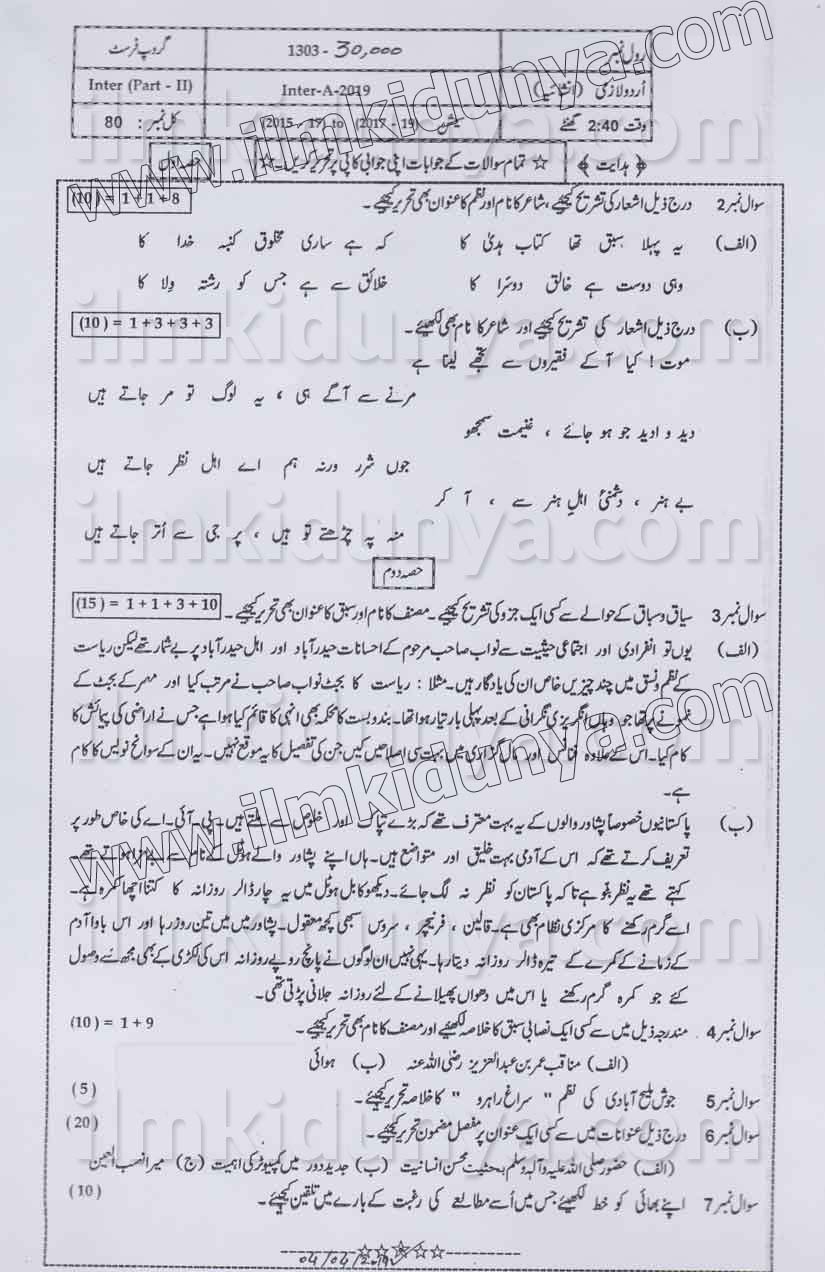 رول نمبر 1303 - 30,000 گروپ فرسٹ
اُردو لازمی (انشائیہ) Inter-A-2019 Inter (Part - II)
وقت 2:40 گھنٹے سیشن (2015 - 17) to (2017 - 19) کل نمبر : 80
﴿ ہدایت ﴾ ☆ تمام سوالات کے جوابات اپنی جوابی کاپی پر تحریر کریں۔ ☆ حصہ اول
سوال نمبر 2 درج ذیل اشعار کی تشریح کیجیے ، شاعر کا نام اور نظم کا عنوان بھی تحریر کیجیے ۔ (10) = 1 + 1 + 8
(الف) یہ پہلا سبق تھا کتاب ہدیٰ کا کہ ہے ساری مخلوق کنبہ خدا کا
وہی دوست ہے خالق دوسَرا کا خلائق سے ہے جس کو رشتہ وِلا کا
(ب) درج ذیل اشعار کی تشریح کیجیے اور شاعر کا نام بھی لکھیئے ۔ (10) = 1 + 3 + 3 + 3
موت ! کیا آ کے فقیروں سے تجھے لینا ہے
مرنے سے آگے ہی ، یہ لوگ تو مر جاتے ہیں
دید و ادید جو ہو جائے ، غنیمت سمجھو
جوں شرر ورنہ ہم اے اہل نظر جاتے ہیں
بے ہنر ، دشمنیٔ اہلِ ہنر سے ، آ کر
منہ پہ چڑھتے تو ہیں ، پر جی سے اُتر جاتے ہیں
حصہ دوم
سوال نمبر 3 سیاق و سباق کے حوالے سے کسی ایک جزو کی تشریح کیجیے ۔ مصنف کا نام اور سبق کا عنوان بھی تحریر کیجیے ۔ (15) = 1 + 1 + 3 + 10
(الف) یوں تو انفرادی اور اجتماعی حیثیت سے نواب صاحب مرحوم کے احسانات حیدرآباد اور اہل حیدرآباد پر بے شمار تھے لیکن ریاست
کے نظم و نسق میں چند چیزیں خاص ان کی یادگار ہیں۔ مثلا : ریاست کا بجٹ نواب صاحب نے مرتب کیا اور مصر کے بجٹ کے
نمونے پر تھا جو وہاں انگریزی نگرانی کے بعد پہلی بار تیار ہوا تھا۔ بندوبست کا محکمہ بھی انہی کا قائم کیا ہوا ہے جس نے اراضی کی پیمائش کا
کام کیا۔ اس کے علاوہ فنانس اور مال گزاری میں بہت سی اصلاحیں کیں جن کی تفصیل کا یہ موقع نہیں۔ یہ ان کے سوانح نویس کا کام
ہے۔
(ب) پاکستانیوں خصوصاً پشاور والوں کے یہ بہت معترف تھے کہ بڑے تپاک اور خلوص سے ملتے ہیں۔ پی۔ آئی۔ اے کی خاص طور پر
تعریف کرتے تھے کہ اس کے آدمی بہت خلیق اور متواضع ہیں۔ ہاں اپنے پشاور والے ہوٹل کے نام سے بدمزا ہوتے تھے۔
کہتے تھے یہ نظر بٹو ہے تاکہ پاکستان کو نظر نہ لگ جائے۔ دیکھو کابل ہوٹل میں یہ چار ڈالر روزانہ کا کتنا اچھا کمرہ ہے۔
اسے گرم رکھنے کا مرکزی نظام بھی ہے۔ قالین ، فرنیچر ، سروس سبھی کچھ معقول۔ پشاور میں میں تین روز رہا اور اس باوا آدم
کے زمانے کے کمرے کے تیرہ ڈالر روزانہ دیتا رہا۔ یہی نہیں ان لوگوں نے پانچ روپے روزانہ اس کی لکڑی کے بھی مجھ سے وصول
کئے جو کمرہ گرم رکھنے یا اس میں دھواں پھیلانے کے لئے روزانہ جلانی پڑتی تھی۔
سوال نمبر 4 مندرجہ ذیل میں سے کسی ایک نصابی سبق کا خلاصہ لکھیئے اور مصنف کا نام بھی تحریر کیجیے ۔ (10) = 1 + 9
(الف) مناقب عمر بن عبدالعزیز رضی اللہ عنہ (ب) ہوائی
سوال نمبر 5 جوش ملیح آبادی کی نظم " سراغ راہرو " کا خلاصہ تحریر کیجیئے ۔ (5)
سوال نمبر 6 درج ذیل عنوانات میں سے کسی ایک عنوان پر مفصل مضمون تحریر کیجیئے ۔ (20)
(الف) حضور صلی اللہ علیہ و آلہ وسلم بحثیت محسن انسانیت (ب) جدید دور میں کمپیوٹر کی اہمیت (ج) میرا نصب العین
سوال نمبر 7 اپنے بھائی کو خط لکھیئے جس میں اُسے مطالعے کی رغبت کے بارے میں تلقین کیجیئے ۔ (10)
----------☆☆☆☆☆----------
04/04/2019
www.ilmkidunya.com
ilmkidunya.com
ilmkidunya.com
ilmkidunya.com
www.ilmkidunya.com
ilmkidunya.com
ilmkidunya.com
ilmkidunya.com